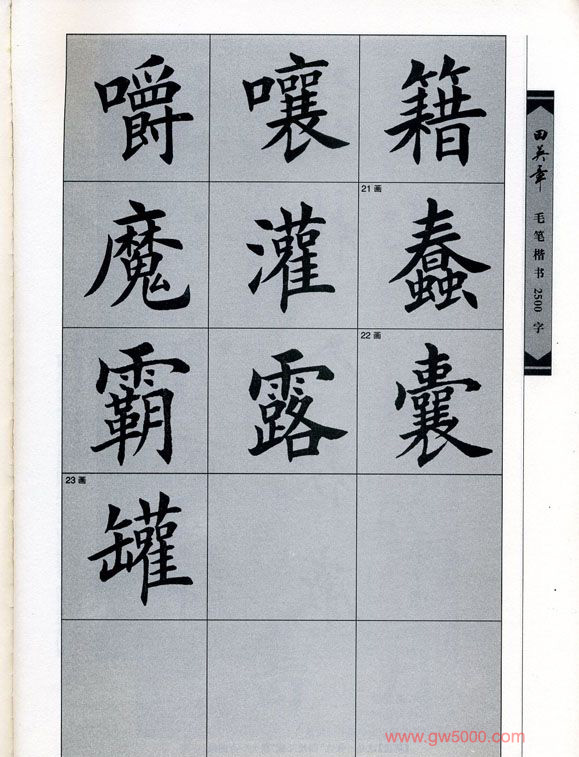 嚼 嚷 籍
21画
魔 灌 蠢
22画
霸 露 囊
23画
罐
田英章
毛笔楷书2500字
www.gw5000.com